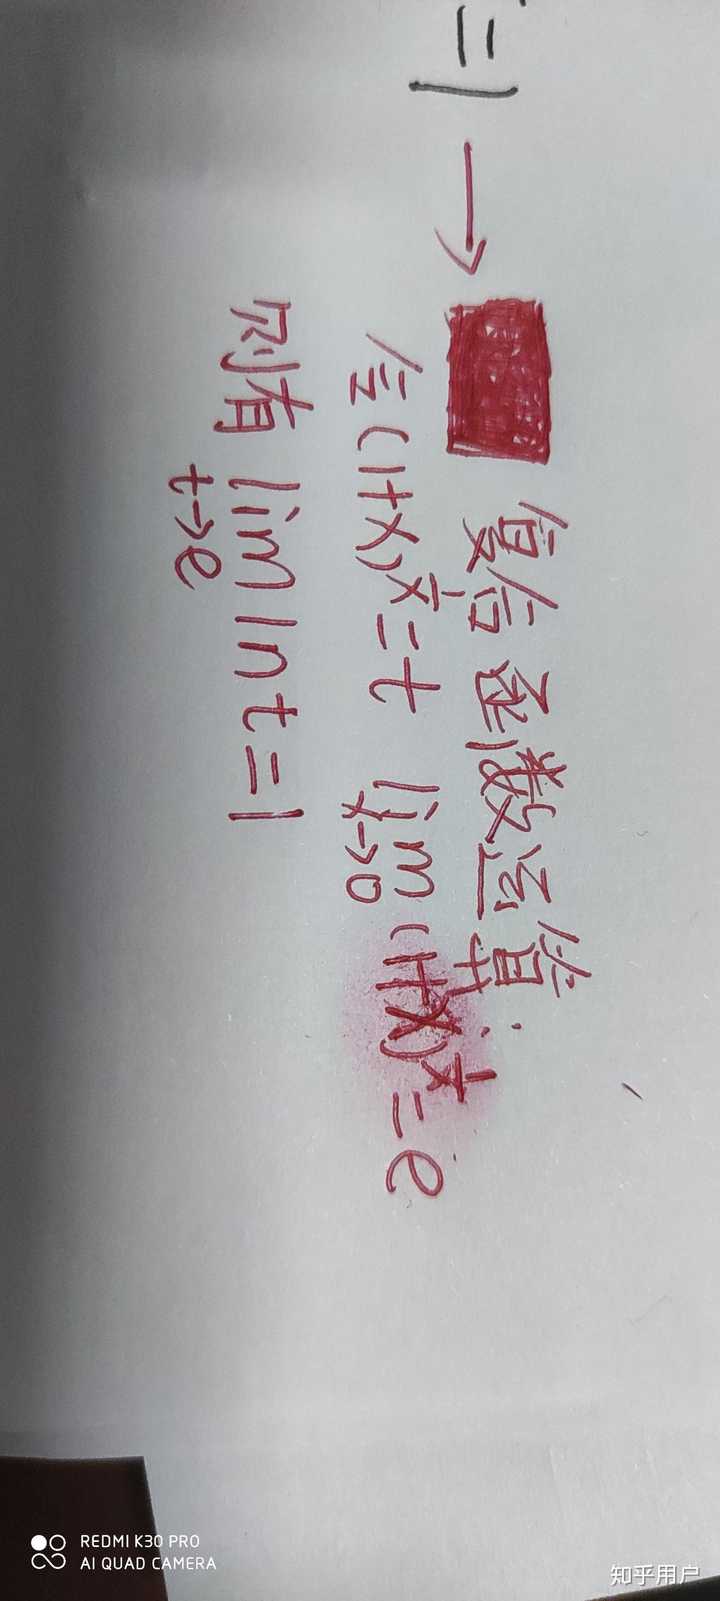 =1 → 复合函数运算:
令(1+x)^{\frac{1}{x}}=t lim_{x→0}(1+x)^{\frac{1}{x}}=e
则有 lim_{t→e} ln t=1
REDMI K30 PRO
AI QUAD CAMERA
知乎用户